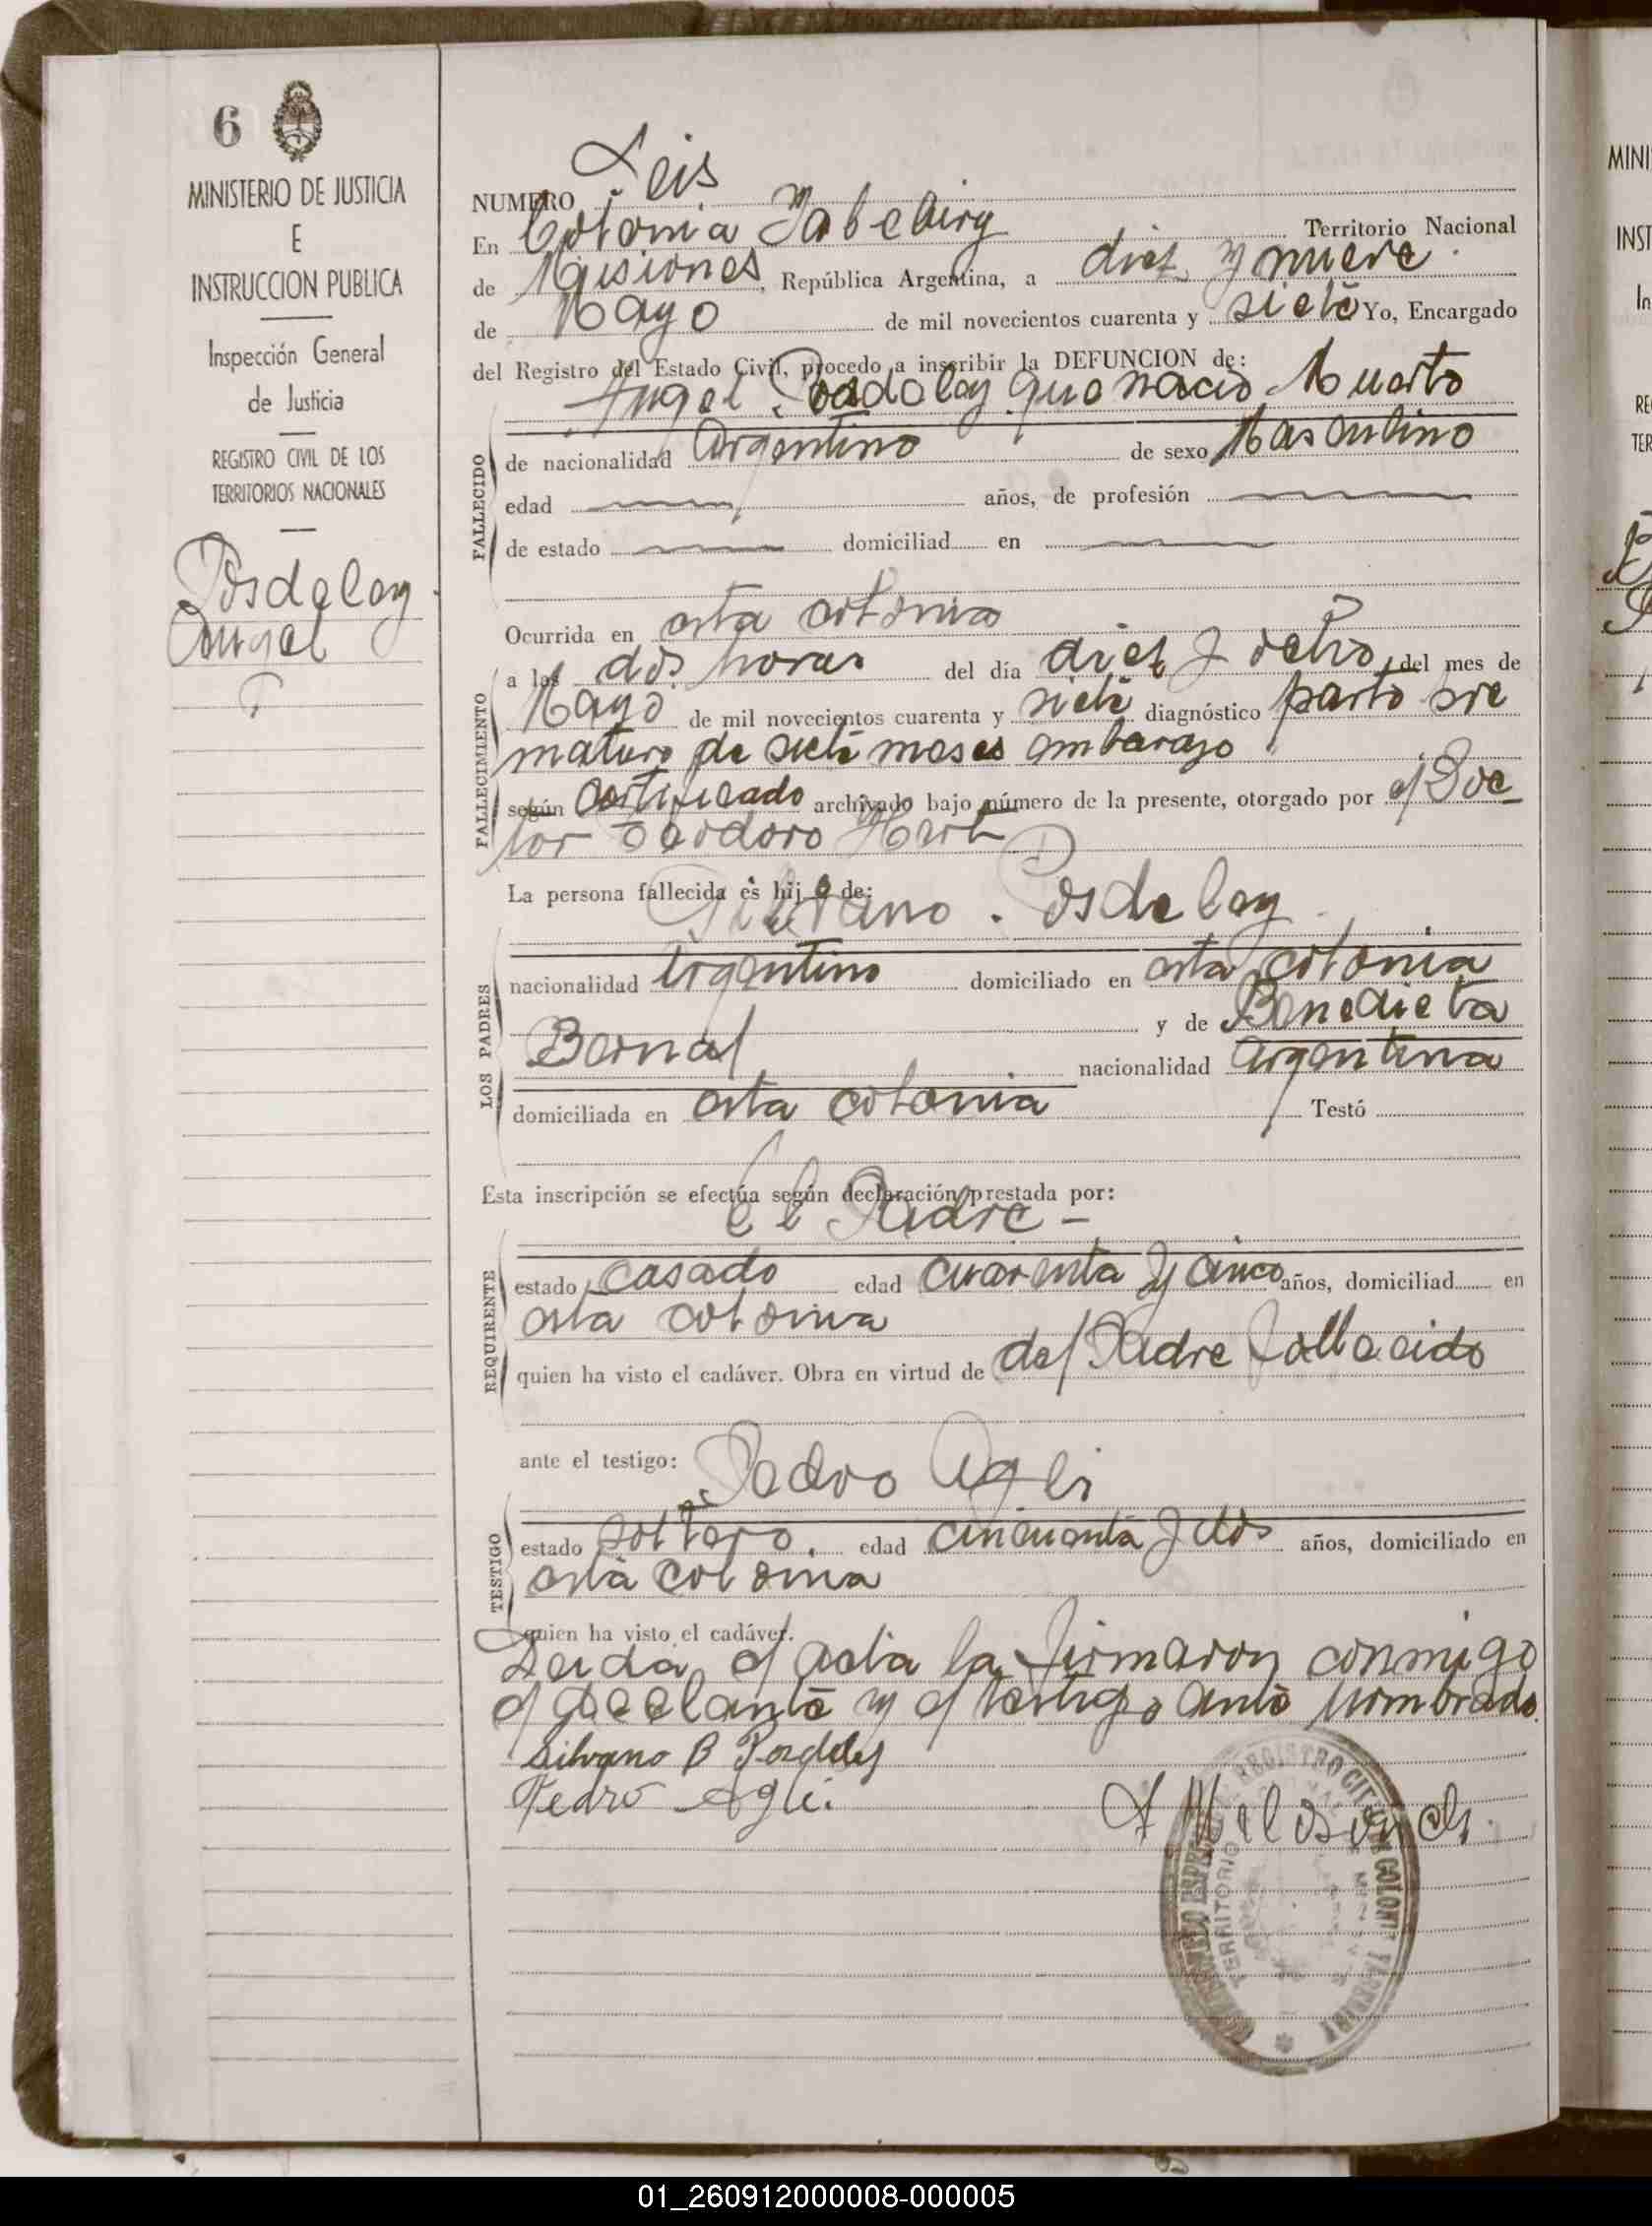 6
MINISTERIO DE JUSTICIA
E
INSTRUCCION PUBLICA
Inspección General
de Justicia
REGISTRO CIVIL DE LOS
TERRITORIOS NACIONALES
Posdeley
Angel
NUMERO Seis
En Colonia Yabebiry Territorio Nacional
de Misiones, República Argentina, a diez y nueve
de Mayo de mil novecientos cuarenta y siete Yo, Encargado
del Registro del Estado Civil, procedo a inscribir la DEFUNCION de:
Angel Posdeley que nacio Muerto
FALLECIDO
de nacionalidad Argentino de sexo Masculino
edad años, de profesión
de estado domiciliad en
Ocurrida en esta colonia
FALLECIMIENTO
a las dos horas del día diez y ocho, del mes de
Mayo de mil novecientos cuarenta y siete diagnóstico parto pre
maturo de siete meses embaraso
según Certificado archivado bajo número de la presente, otorgado por el Doc
tor Teodoro
La persona fallecida es hijo de:
Silvano Posdeley
LOS PADRES
nacionalidad Argentino domiciliado en esta colonia
y de Benedicta
Bernal nacionalidad argentina
domiciliada en esta colonia Testó
Esta inscripción se efectúa según declaración prestada por:
El Padre -
REQUIRENTE
estado casado edad cuarenta y cinco años, domiciliad en
esta colonia
quien ha visto el cadáver. Obra en virtud de del Padre fallecido
ante el testigo: Pedro Agli
TESTIGO
estado soltero. edad cincuenta y dos años, domiciliado en
esta colonia
quien ha visto el cadáver.
Leida el acta la firmaron conmigo
el y el testigo ante nombrado.
Silvano B
Pedro Agli.
REGISTRO CIVIL
TERRITORIO
MINI
INST
In
RE
TER
01_260912000008-000005